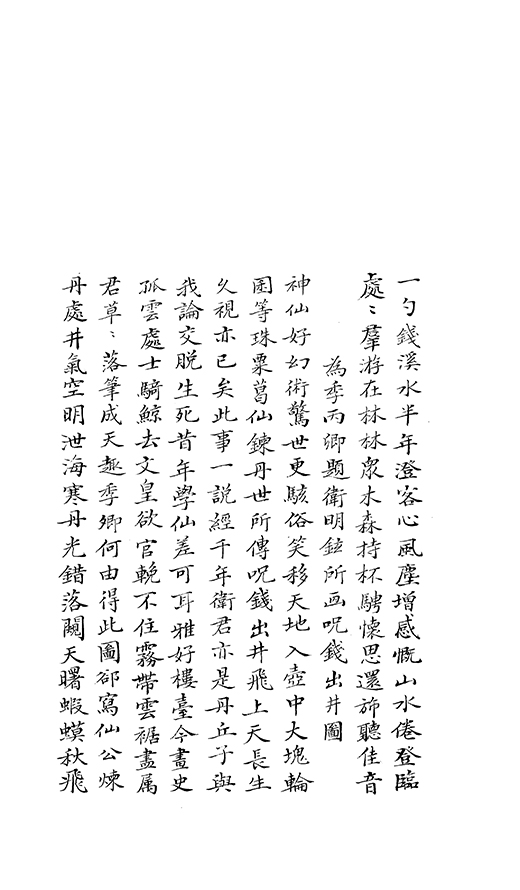 一勺錢溪水半年澄客心風塵增感慨山水倦登臨
處〻羣游在林林衆木森持杯騁懷思還旆聽佳音
為季丙卿題衛明鉉所画呪錢出井圖
神仙好幻術驚世更駭俗笑移天地入壺中大塊輪
囷等珠粟葛仙鍊丹世所傳呪錢出井飛上天長生
久視亦已矣此事一說經千年衛君亦是丹丘子與
我論交脫生死昔年學仙差可耳雅好樓臺今畫史
孤雲處士騎鯨去文皇欲官輓不住霧帶雲裾盡属
君草〻落筆成天趣季卿何由得此圖郤寫仙公煉
丹處井氣空明泄海寒丹光錯落闚天曙蝦蟆秋飛